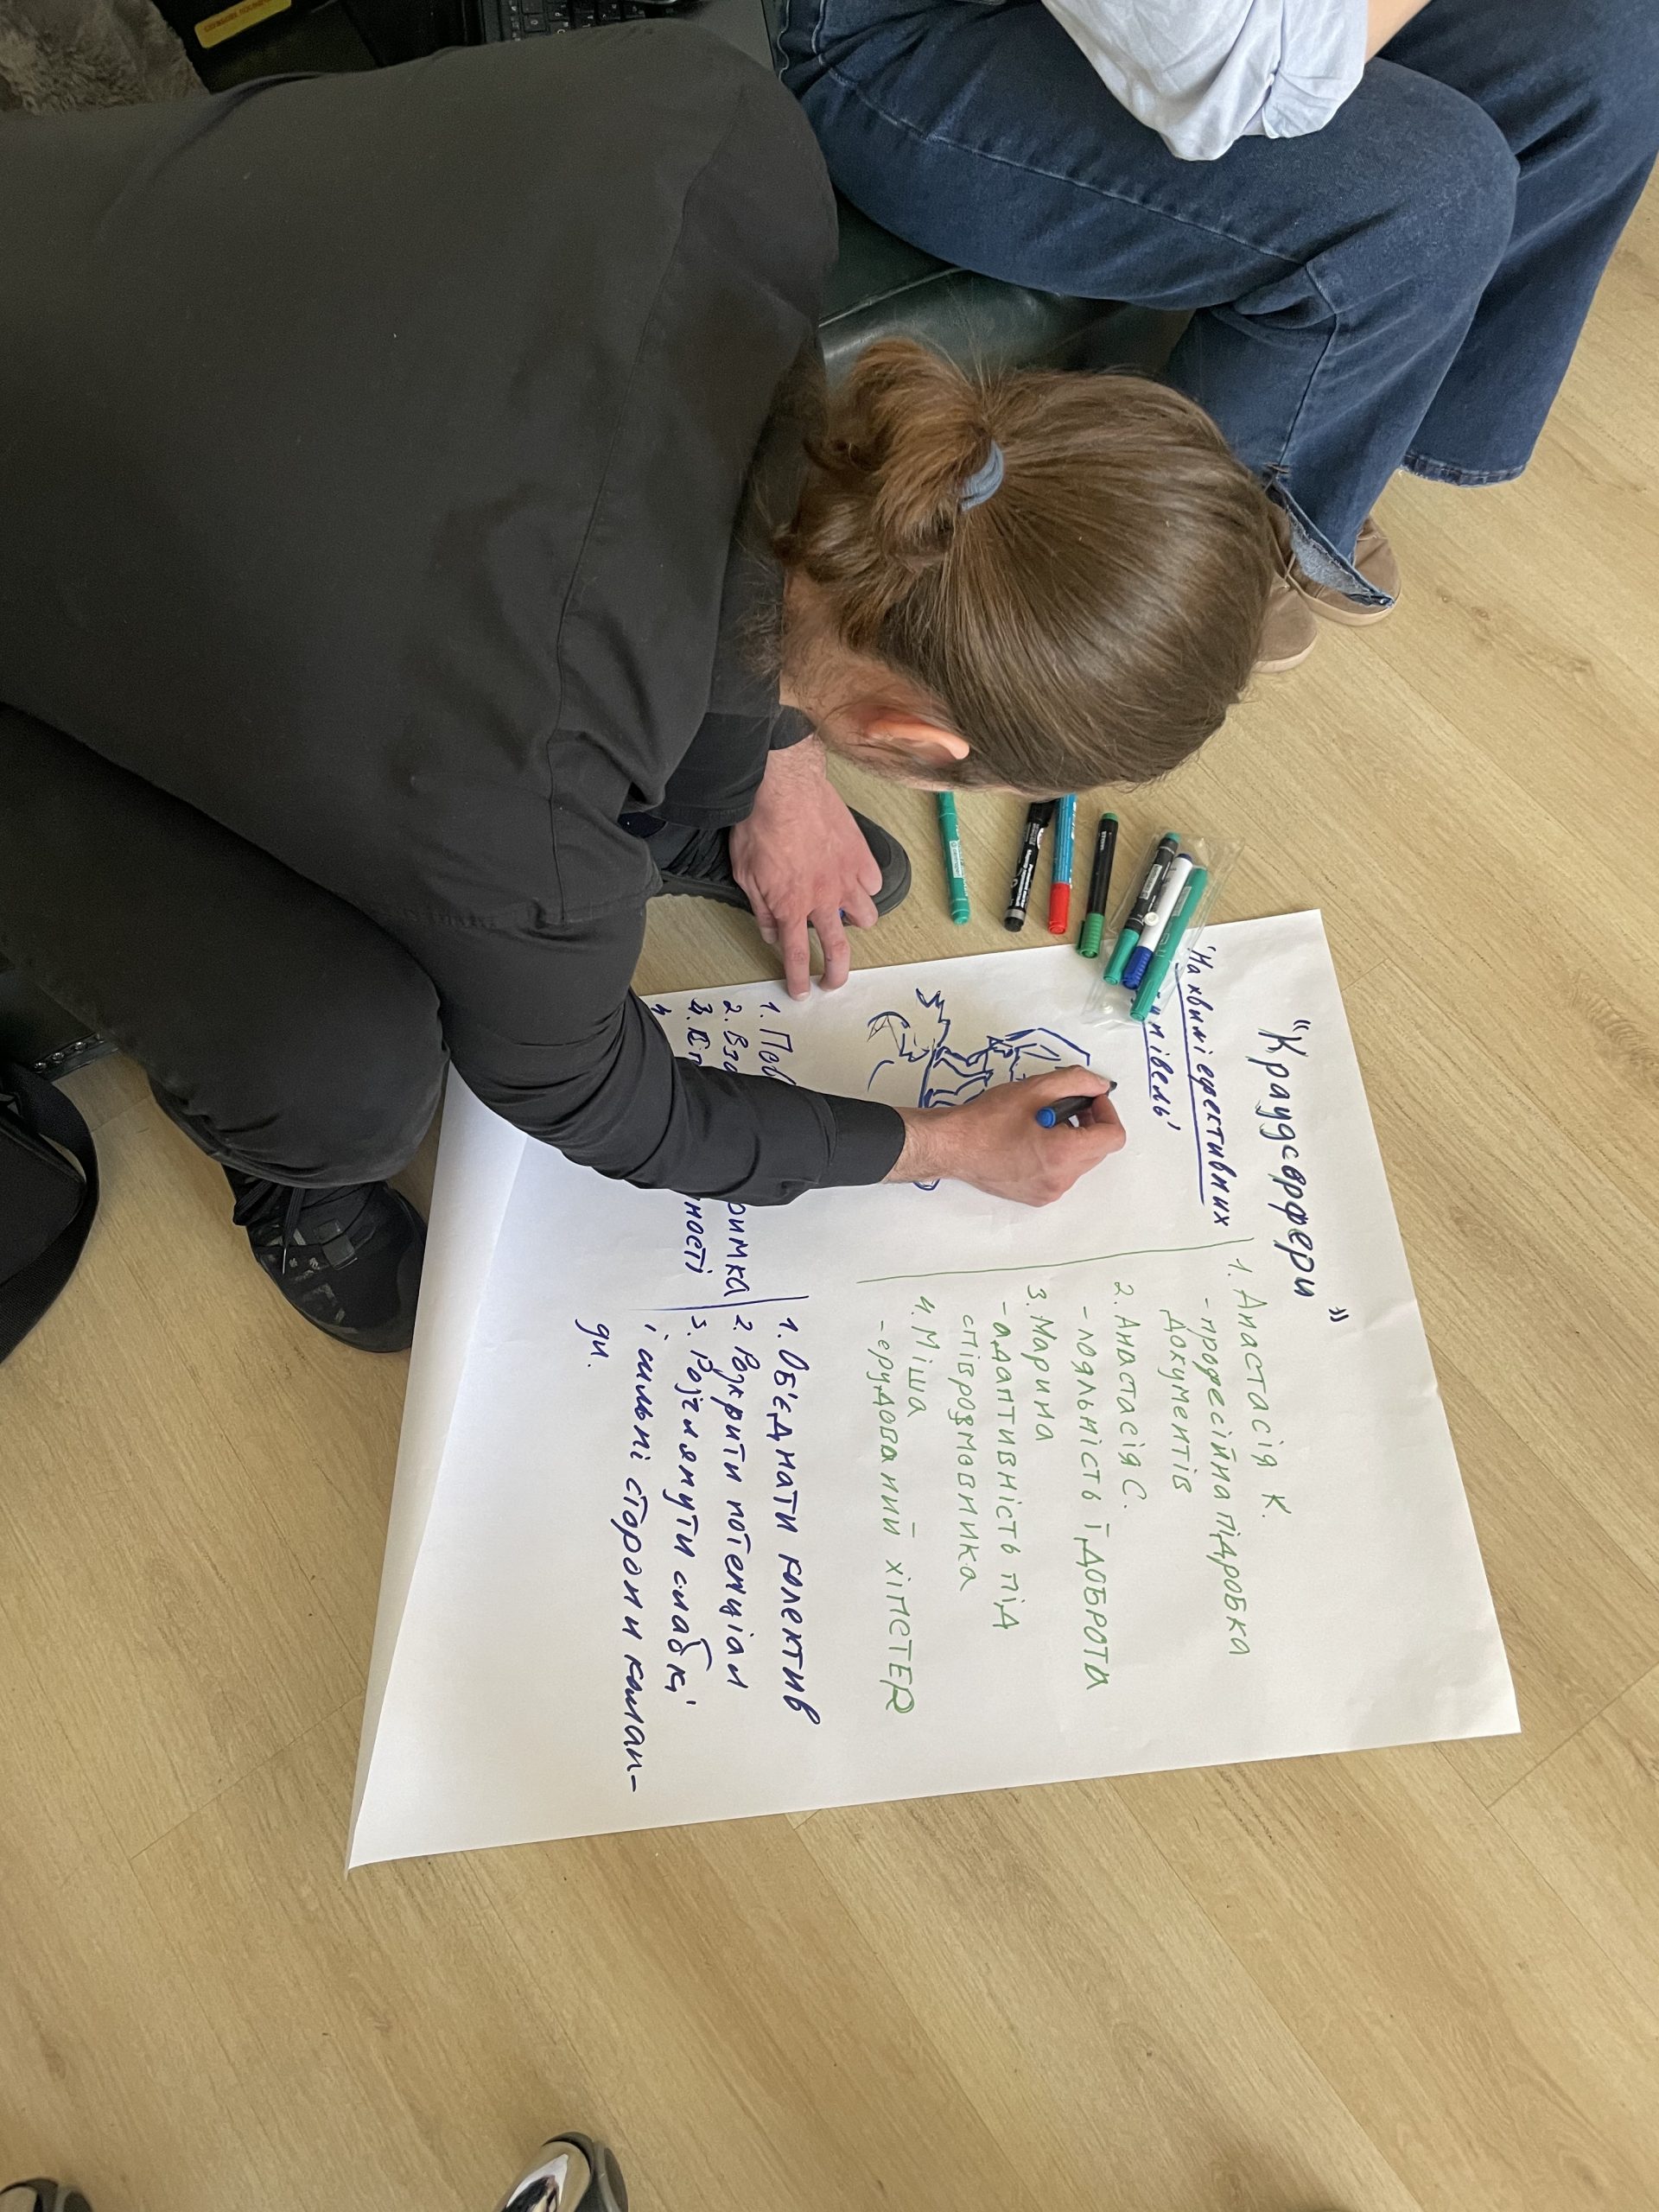 "Краудсерфери"
'На хвилі ефективних
мівель'
1. Анастасія К.
- професійна підробка
документів
2. Анастасія С.
- лояльність і доброта
3. Марина
- адаптивність під
співрозмовника
4. Міша
- ерудований хіпстер
1. Пов
2. Вза римка
3. В ності
1. Об'єднати колектив
2. Розкрити потенціал
3. Роз'яснути слабкі
і сильні сторони коман-
ди.